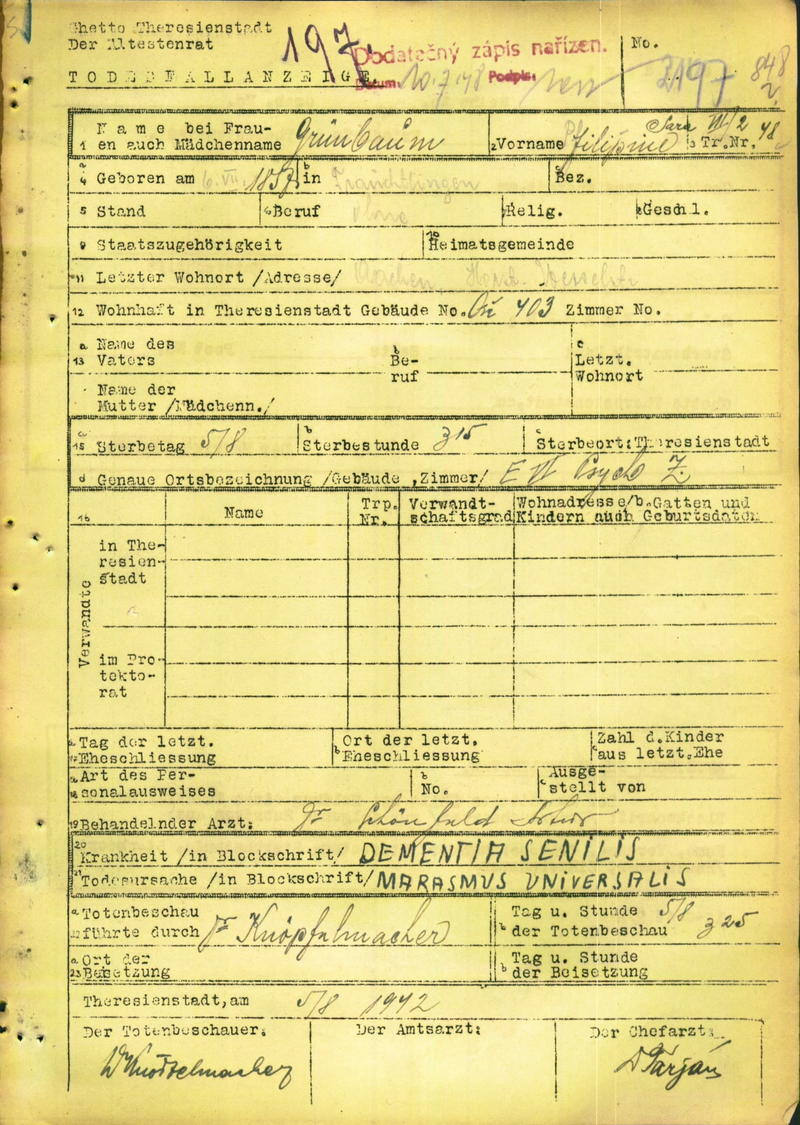 Ghetto Theresienstadt
Der Ältestenrat
TODESFALLANZEIGE
197.
Dodatečný zápis nařízen.
Datum: 10.7.48 Podpis:
No.
2197
848
1 Name bei Frau-
en auch Mädchenname Grünbaum
2 Vorname Filipine Sara
3 Tr.Nr. VII/2 48
a
4 Geboren am 6.VII. 1857
b in
c Bez.
5 Stand
6 Beruf Ohne
7 Relig.
8 Geschl.
9 Staatszugehörigkeit
10 Heimatsgemeinde
11 Letzter Wohnort /Adresse/ Aachen,
12 Wohnhaft in Theresienstadt Gebäude No. Qu 403 Zimmer No.
a 13 Name des
Vaters
b Be-
ruf
c Letzt.
Wohnort
Name der
Mutter /Mädchenn./
a
15 Sterbetag 5/8
b Sterbestunde 3 15
c Sterbeort: Theresienstadt
d Genaue Ortsbezeichnung /Gebäude, Zimmer/ E VI Psych Z.
16
Name
Trp.
Nr.
Verwandt-
schaftsgrad
Wohnadresse/b.Gatten und
Kindern auch Geburtsdaten
Verwandte
in The-
resien-
stadt
im Pro-
tekto-
rat
a 17 Tag der letzt.
Eheschliessung
b Ort der letzt.
Eheschliessung
c Zahl d.Kinder
aus letzt.Ehe
a 18 Art des Per-
sonalausweises
b No.
c Ausge-
stellt von
19 Behandelnder Arzt: Dr Schönfeld
20
Krankheit /in Blockschrift/ DEMENTIA SENILIS
21 Todesursache /in Blockschrift/ MARASMUS UNIVERSALIS
a 22 Totenbeschau
führte durch Dr Knöpfelmacher
b Tag u. Stunde
der Totenbeschau 5/8 3 25
a 23 Ort der
Beisetzung
b Tag u. Stunde
der Beisetzung
Theresienstadt, am 5/8 1942
Der Totenbeschauer:
Der Amtsarzt:
Der Chefarzt:
Dr Knöpfelmacher